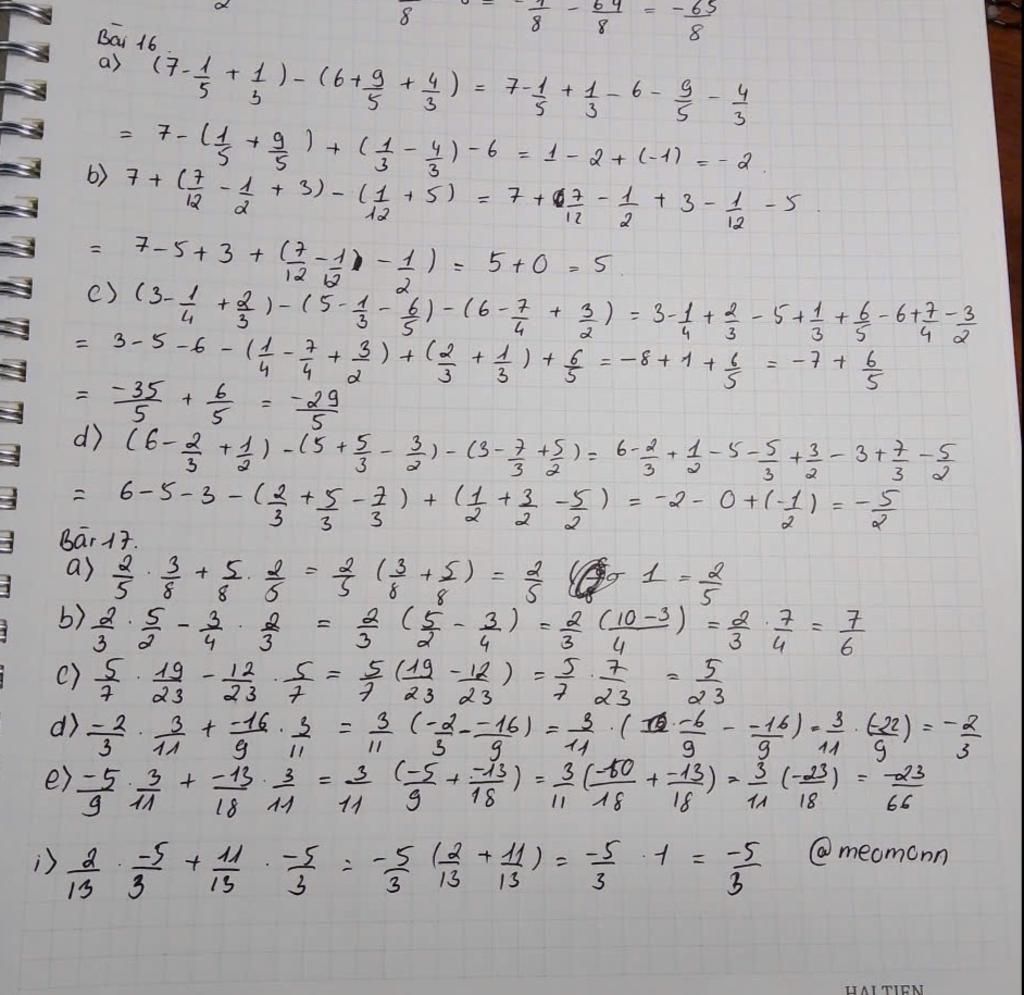 2 8 8 = -1/8 - 64/8 = -65/8
Bài 16.
a) (7 - 1/5 + 1/3) - (6 + 9/5 + 4/3) = 7 - 1/5 + 1/3 - 6 - 9/5 - 4/3
= 7 - (1/5 + 9/5) + (1/3 - 4/3) - 6 = 1 - 2 + (-1) = -2.
b) 7 + (7/12 - 1/2 + 3) - (1/12 + 5) = 7 + 7/12 - 1/2 + 3 - 1/12 - 5.
= 7 - 5 + 3 + (7/12 - 1/12 - 1/2) = 5 + 0 = 5.
c) (3 - 1/4 + 2/3) - (5 - 1/3 - 6/5) - (6 - 7/4 + 3/2) = 3 - 1/4 + 2/3 - 5 + 1/3 + 6/5 - 6 + 7/4 - 3/2
= 3 - 5 - 6 - (1/4 - 7/4 + 3/2) + (2/3 + 1/3) + 6/5 = -8 + 1 + 6/5 = -7 + 6/5
= -35/5 + 6/5 = -29/5
d) (6 - 2/3 + 1/2) - (5 + 5/3 - 3/2) - (3 - 7/3 + 5/2) = 6 - 2/3 + 1/2 - 5 - 5/3 + 3/2 - 3 + 7/3 - 5/2
= 6 - 5 - 3 - (2/3 + 5/3 - 7/3) + (1/2 + 3/2 - 5/2) = -2 - 0 + (-1/2) = -5/2
Bài 17.
a) 2/5 . 3/8 + 5/8 . 2/5 = 2/5 (3/8 + 5/8) = 2/5 . 1 = 2/5
b) 2/3 . 5/2 - 3/4 . 2/3 = 2/3 (5/2 - 3/4) = 2/3 (10-3/4) = 2/3 . 7/4 = 7/6
c) 5/7 . 19/23 - 12/23 . 5/7 = 5/7 (19/23 - 12/23) = 5/7 . 7/23 = 5/23
d) -2/3 . 3/11 + -16/9 . 3/11 = 3/11 (-2/3 - -16/9) = 3/11 . (-6/9 - -16/9) = 3/11 . (-22/9) = -2/3
e) -5/9 . 3/11 + -13/18 . 3/11 = 3/11 (-5/9 + -13/18) = 3/11 (-10/18 + -13/18) = 3/11 (-23/18) = -23/66
i) 2/13 . -5/3 + 11/13 . -5/3 = -5/3 (2/13 + 11/13) = -5/3 . 1 = -5/3 @meomonn
HALTIEN